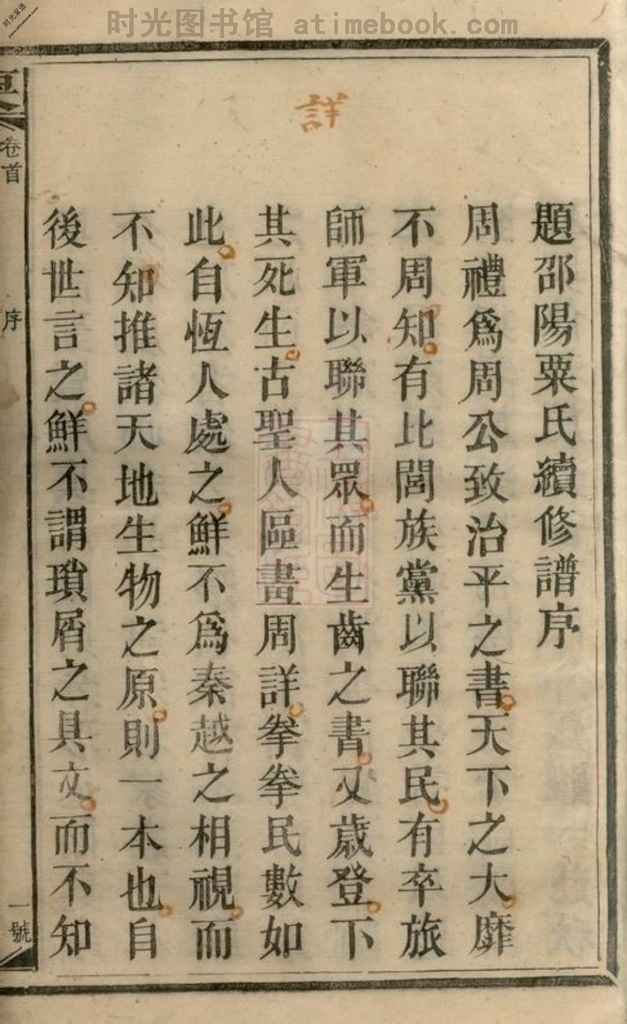 时光图书馆 atimebook.com
詳
題邵陽粟氏續修譜序
周禮爲周公致治平之書天下之大靡
不周知有比閭族黨以聯其民有卒旅
師軍以聯其眾而生齒之書又歲登下
其死生古聖人區畫周詳拳拳民數如
此自恆人處之鮮不爲秦越之相視而
不知推諸天地生物之原則一本也自
後世言之鮮不謂瑣屑之具文而不知
卷首
序
一號